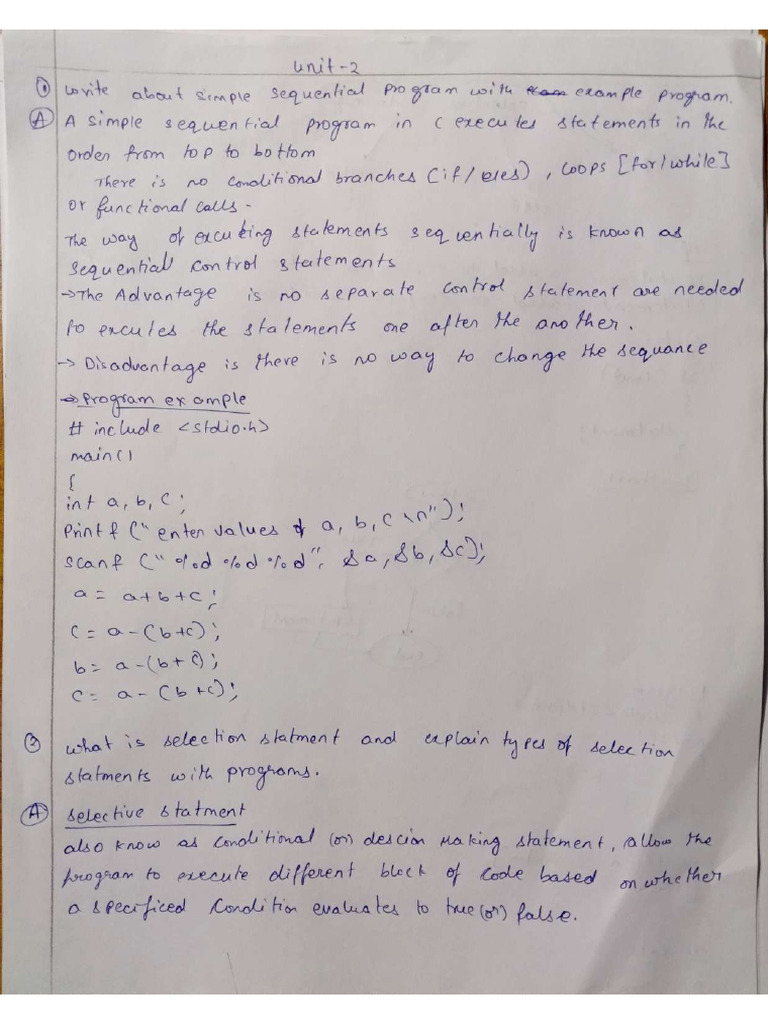 Unit-2
① Write about simple sequential program with example program.
Ⓐ A simple sequential program in C executes statements in the
order from top to bottom
There is no conditional branches (if/eles), loops [for/while]
or functional calls.
The way of excuting statements sequentially is known as
sequential control statements
→ The Advantage is no separate control statement are needed
to excutes the statements one after the another.
→ Disadvantage is there is no way to change the sequance
→ Program example
# include <stdio.h>
main()
{
int a, b, c;
printf ("enter values of a, b, c \n");
scanf ("%d %d %d", &a, &b, &c);
a = a+b+c;
c = a-(b+c);
b = a-(b+c);
c = a-(b+c);
② what is selection statment and explain types of selection
statments with programs.
Ⓐ selective statment
also know as conditional (or) descion making statement, allow the
program to execute different block of code based on whether
a specificed condition evaluates to true (or) false.